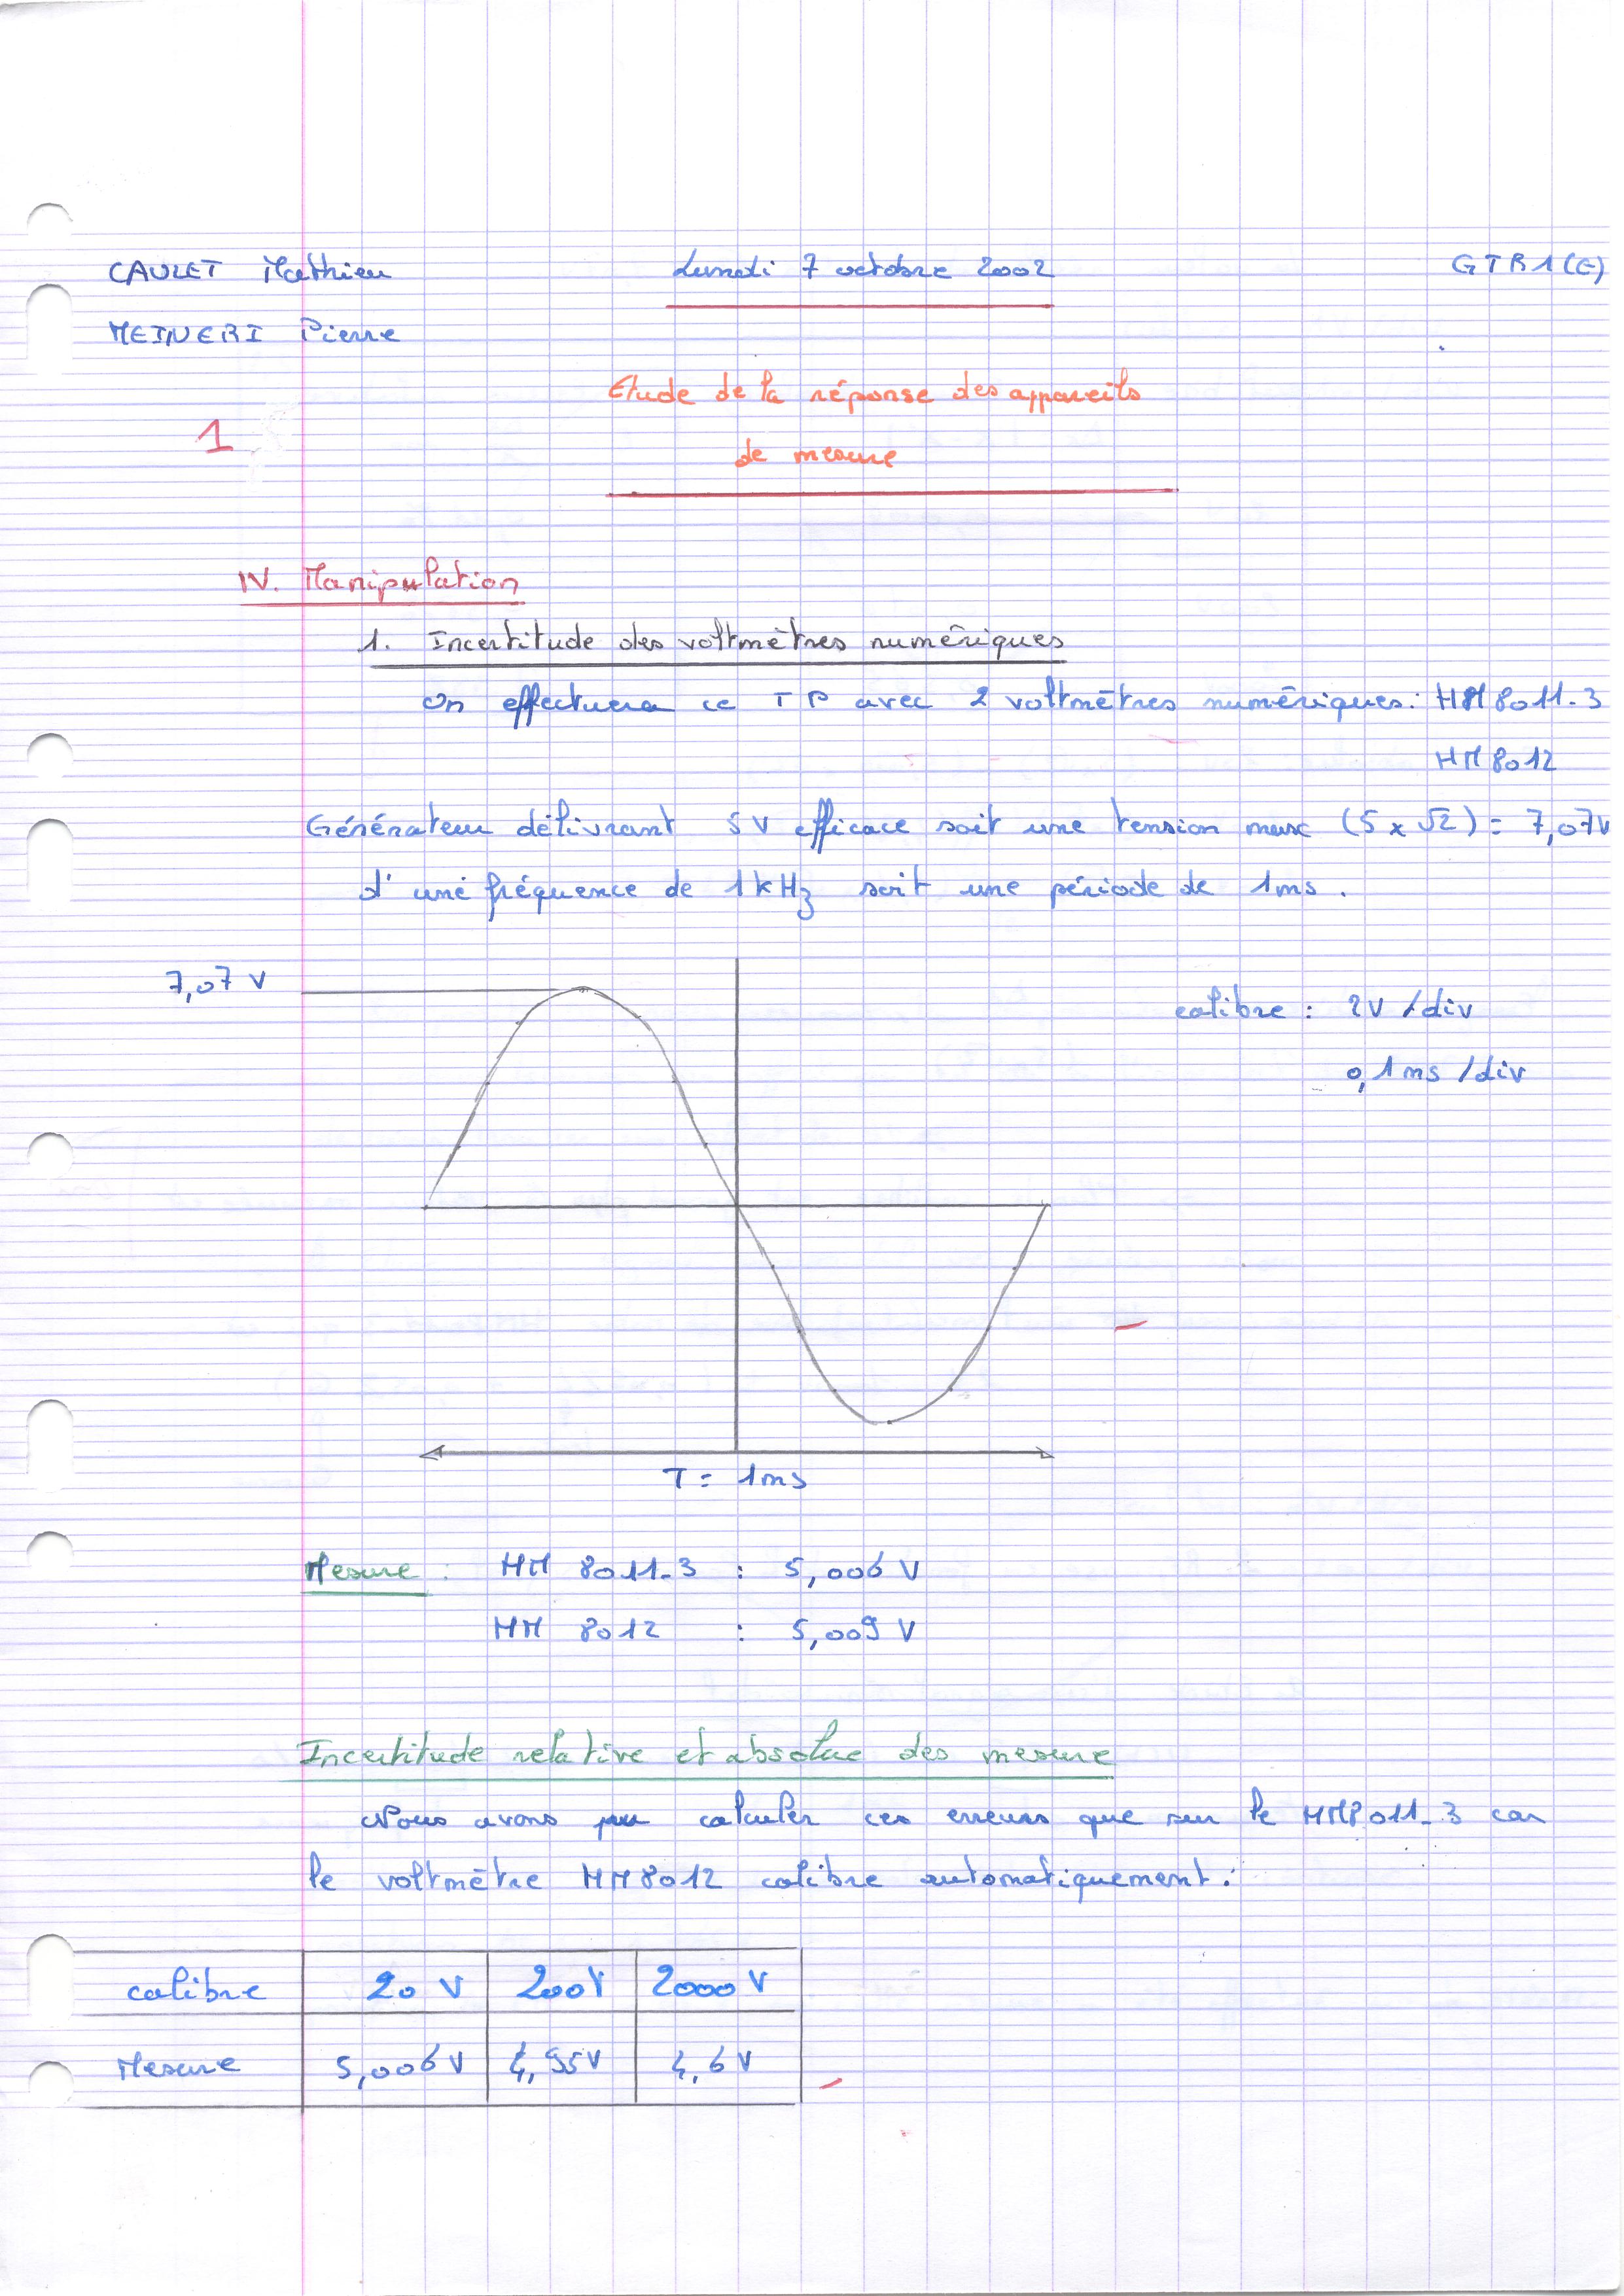 CAULET Mathieu Lundi 7 octobre 2002 GTR1(E)
MEINERI Pierre
Etude de la réponse des appareils
1
de mesure
IV. Manipulation
1. Incertitude des voltmètres numériques
On effectuera ce TP avec 2 voltmètres numériques: HM8011-3
HM8012
Générateur délivrant 5V efficace soit une tension max (5 x √2) = 7,07V
d'une fréquence de 1kHz soit une période de 1ms.
7,07 V
calibre : 2V /div
0,1ms /div
T = 1ms
Mesure : HM 8011-3 : 5,006 V
HM 8012 : 5,009 V
Incertitude relative et absolue des mesure
Nous avons pu calculer ces erreurs que sur le HM8011-3 car
le voltmètre HM8012 calibre automatiquement:
calibre 20 V 200V 2000 V
Mesure 5,006 V 4,95V 4,6 V